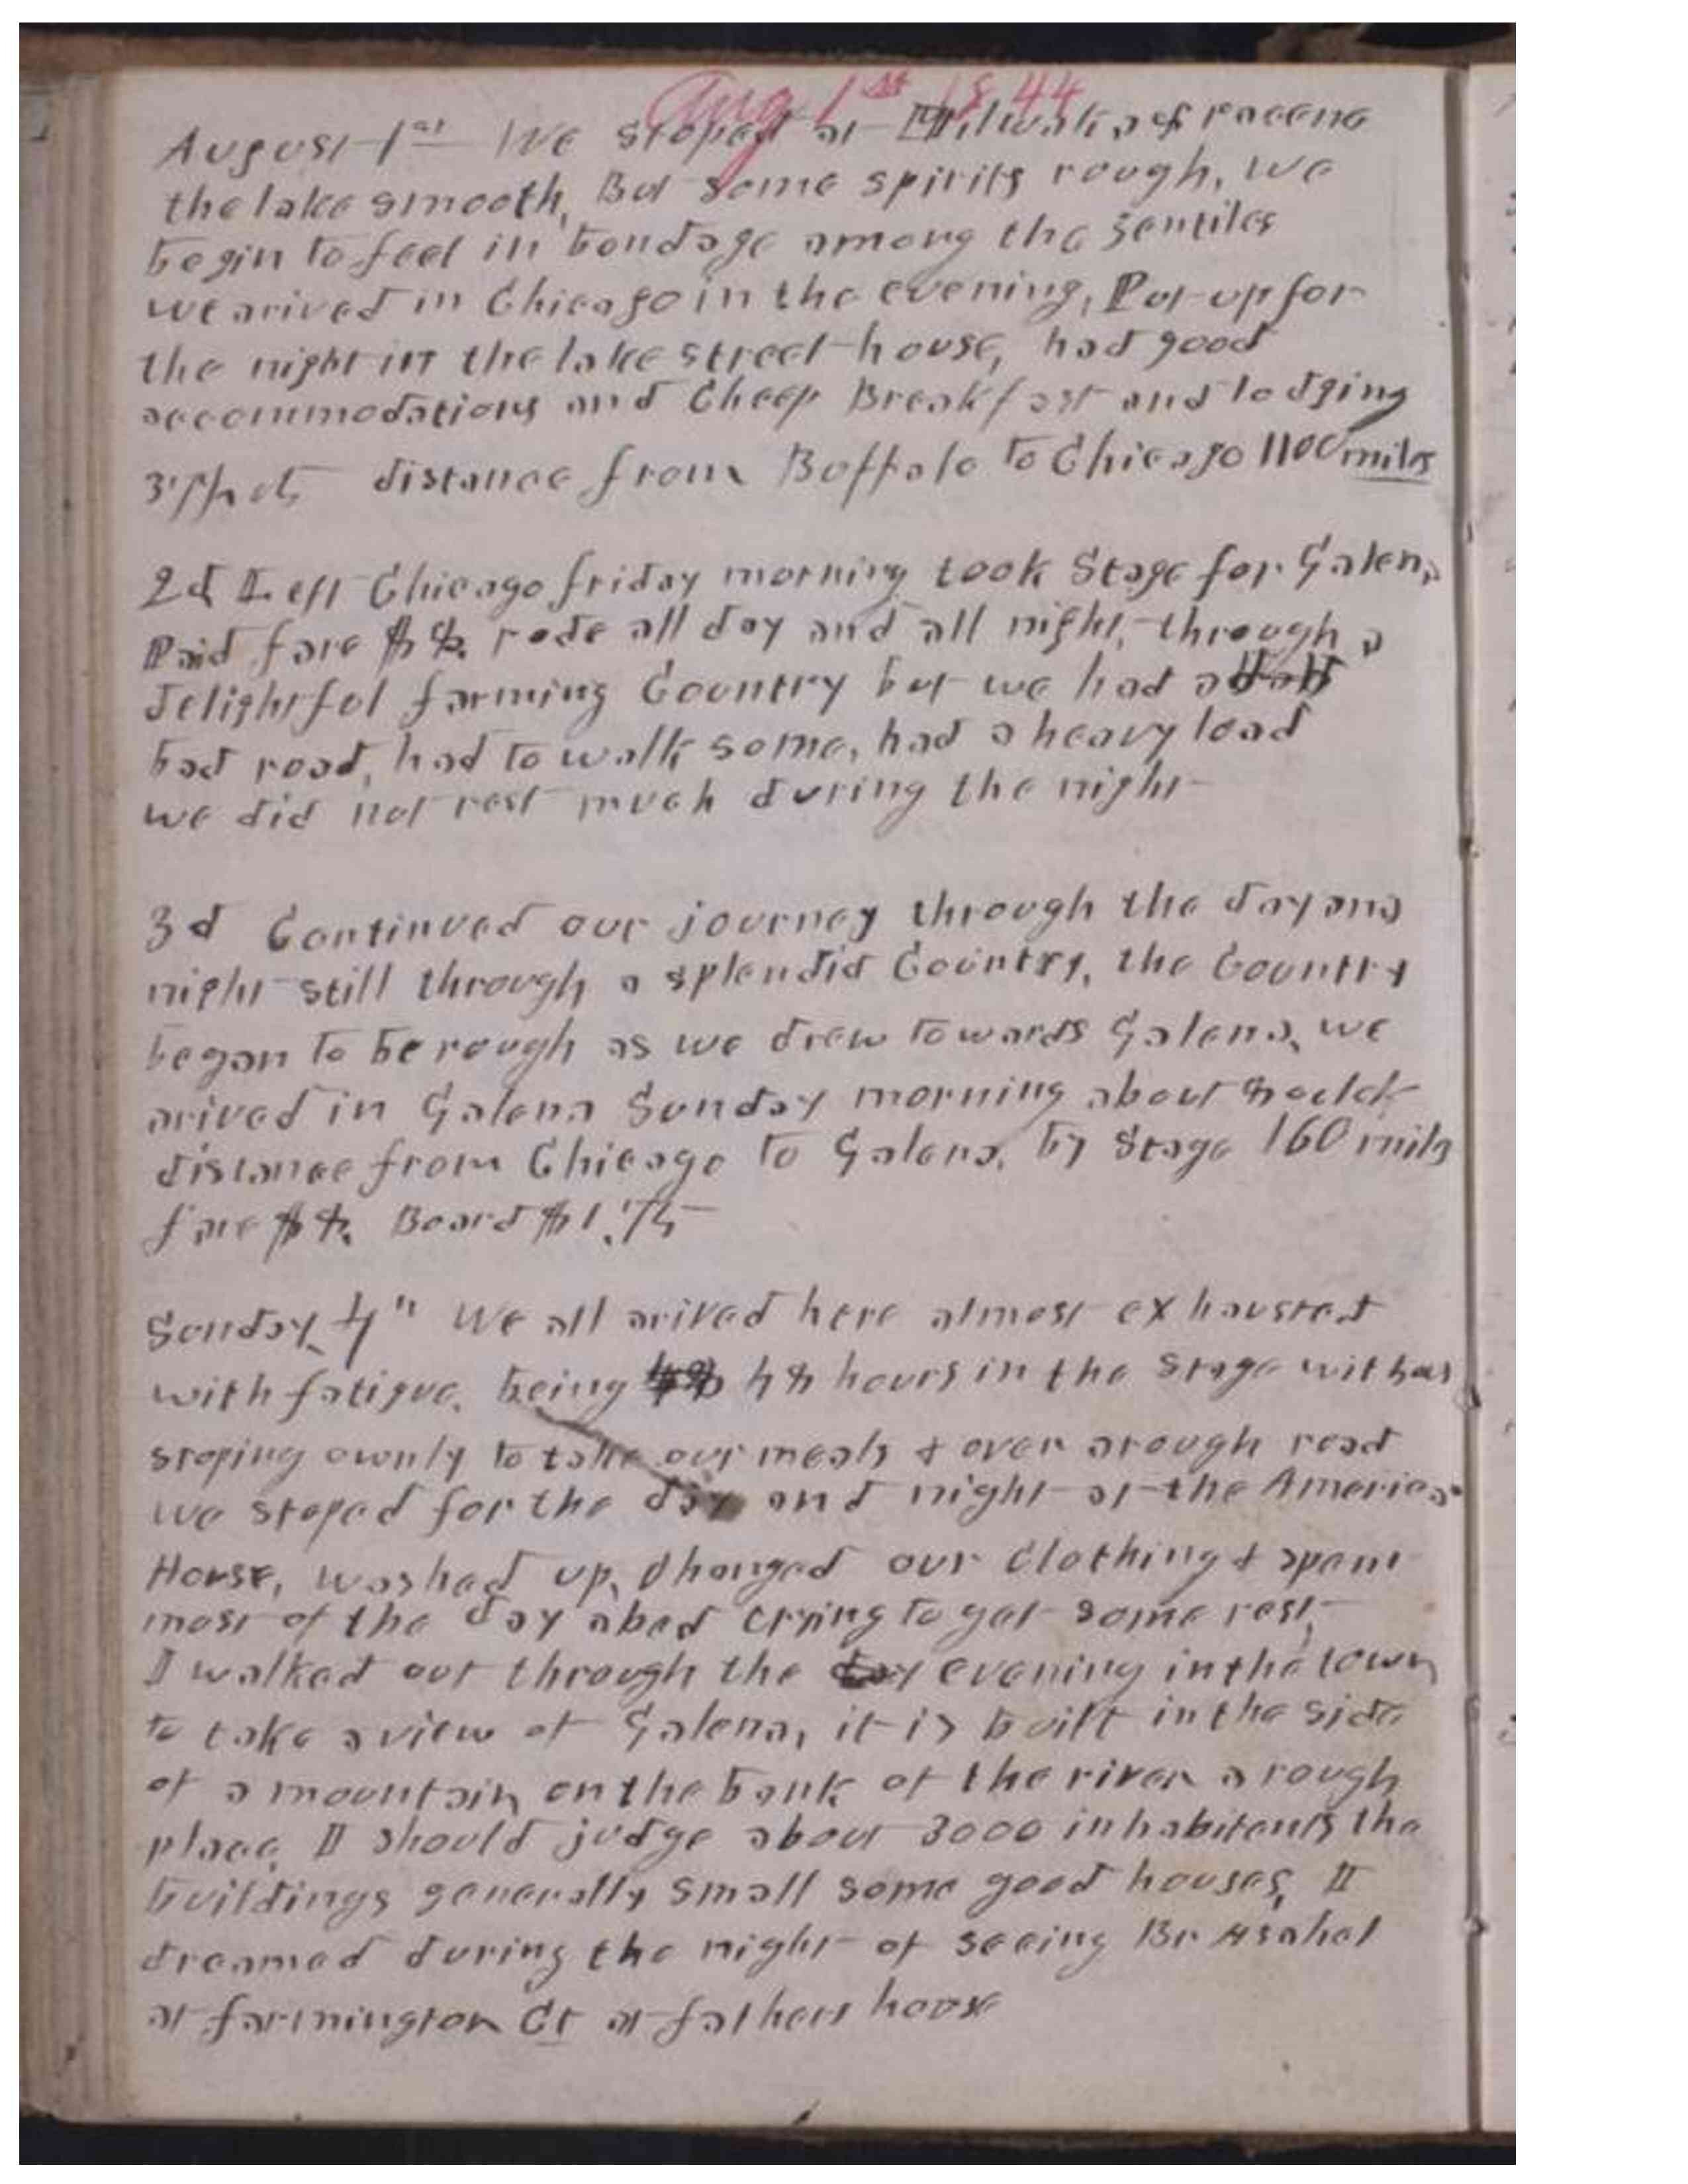 Aug 1st 1844
August 1st We stoped at Milwaka & racene
the lake smooth, But some spirits rough, we
begin to feel in bondage among the gentiles
we arived in Chicago in the evening, Put up for
the night in the lake street house, had good
accommodations and Cheep Breakfast and lodging
distance from Buffalo to Chicago 1100 miles
2d Left Chicago friday morning took Stage for Galena
Paid fare rode all day and all night, through a
delightful farming Country but we had a
bad road, had to walk some, had a heavy load
we did not rest much during the night
3d Continued our journey through the day and
night still through a splendid Country, the Country
began to be rough as we drew towards Galena, we
arived in Galena Sunday morning about
distance from Chicago to Galena, by Stage 160 miles
fare Board $1.75
Sunday 4th We all arived here almost exhausted
with fatigue, being 48 hours in the stage without
stoping ownly to take our meals & over a rough road
we stoped for the day and night at the America
House, washed up, Changed our Clothing & spent
most of the day abed trying to get some rest,
I walked out through the day evening in the town
to take a view of Galena, it is built in the side
of a mountain on the bank of the river a rough
place, I should judge about 3000 inhabitents the
buildings generally small some good houses, I
dreamed during the night of seeing Br Asahel
at farmington Ct at fathers house